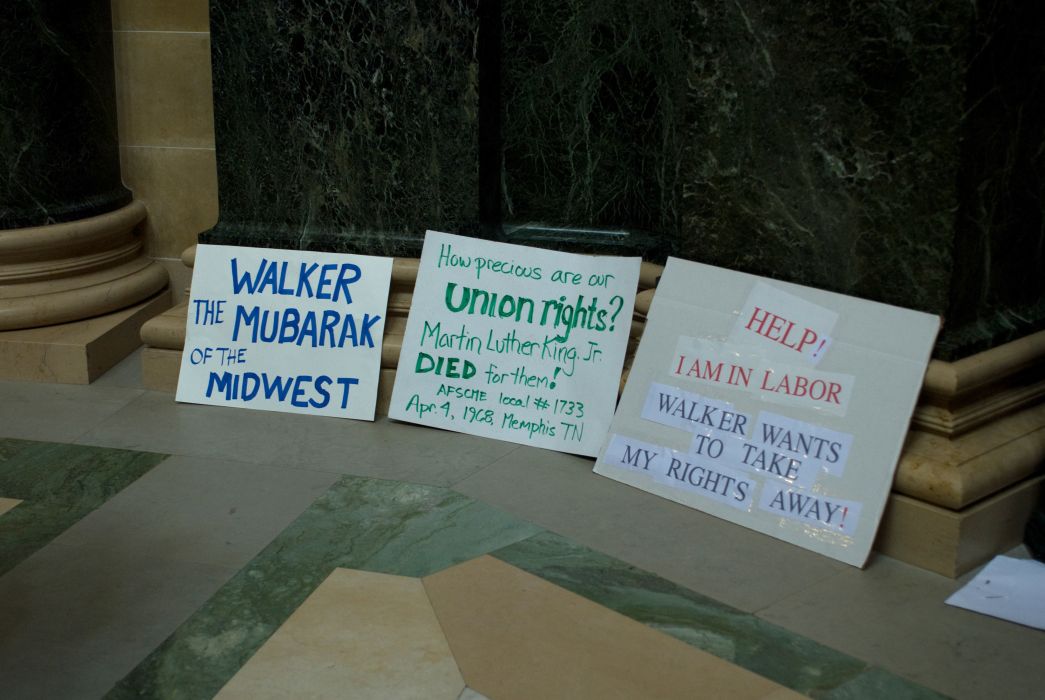 WALKER
THE MUBARAK
OF THE
MIDWEST
How precious are our
Union rights?
Martin Luther King, Jr.
DIED for them!
AFSCME local #1733
Apr. 4, 1968, Memphis TN
HELP!
I AM IN LABOR
WALKER WANTS
TO TAKE
MY RIGHTS AWAY!